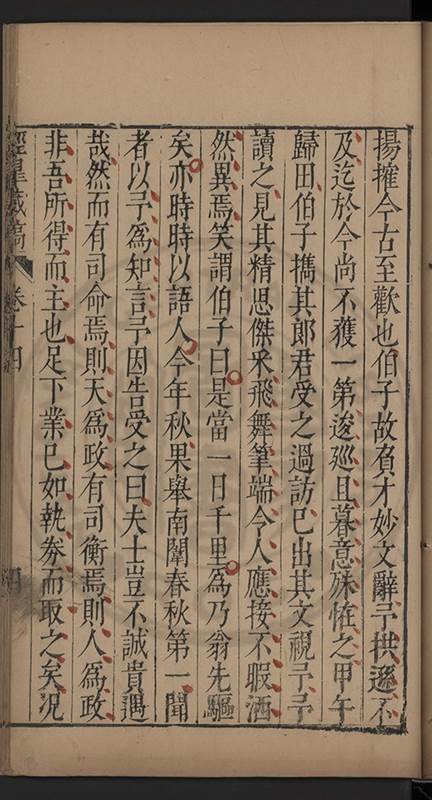 揚搉今古至歡也伯子故負才妙文辭予拱遜不
及迄於今尚不獲一第逡廵且暮意殊恠之甲午
歸田伯子擕其郎君受之過訪巳出其文視予予
讀之見其精思傑釆飛舞筆端令人應接不暇洒
然異焉笑謂伯子曰是當一日千里爲乃翁先驅
矣亦時時以語人今年秋果舉南闈春秋第一聞
者以予爲知言予因告受之曰夫士豈不誠貴遇
哉然而有司命焉則天爲政有司衡焉則人爲政
非吾所得而主也足下業巳如執劵而取之矣况
涇臯藏稿 卷十四 四